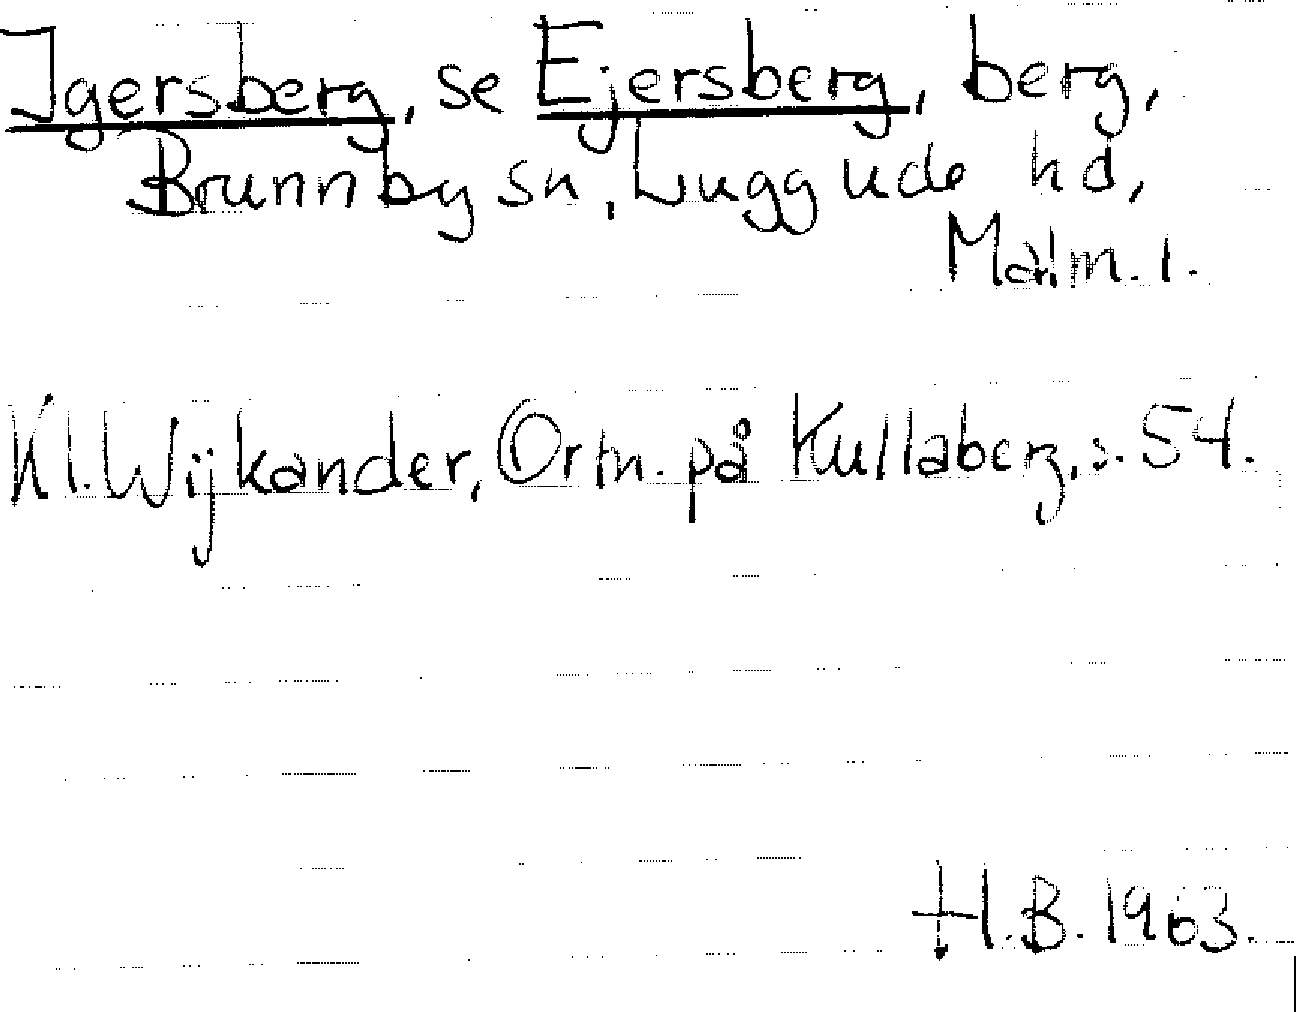 Igersberg, se Ejersberg, berg,
Brunnby sn, Luggude hd,
Malm. l.
Kl. Wijkander, Ortn. på Kullaberg, s. 54.
H.B. 1963.